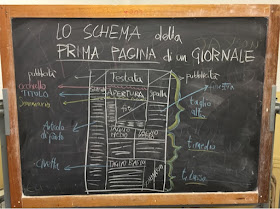 LO SCHEMA della
PRIMA PAGINA di un GIORNALE
pubblicità
Testata
pubblicità
occhiello
TITOLO
sommario
APERTURA
spalla
finestra
foto
taglio
alto
Articolo
di fondo
TAGLIO
MEDIO
t. medio
civetta
TAGLIO BASSO
t. basso